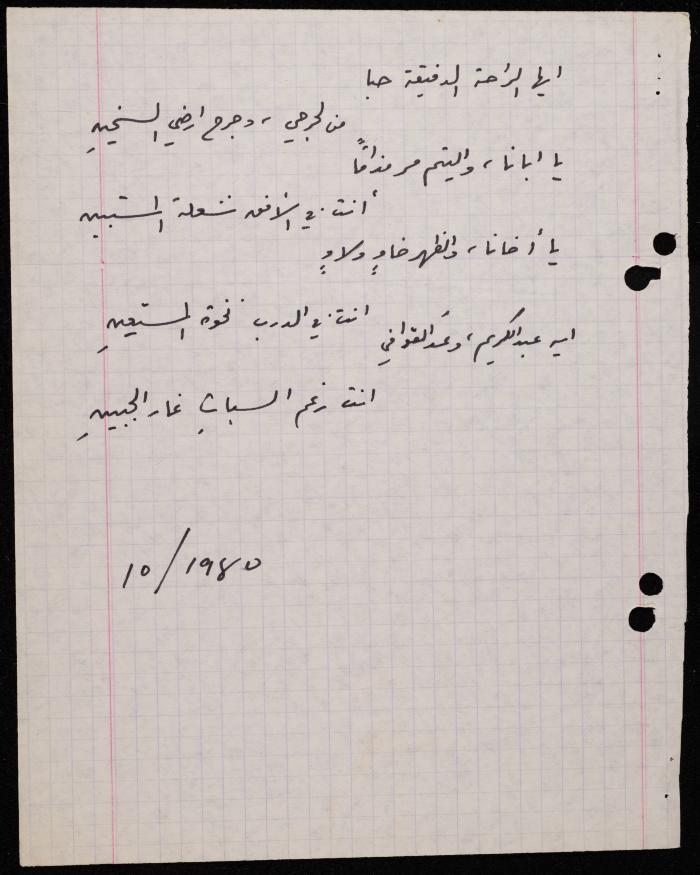 ايها الراحة الدفيقة حبا
من لجرحي، وجرح ارضي السخينِ
يا ابانا، واليتم مر مذاقًا
أنت في الأفق شعلة المستبين
يا أخانا، والظهر خاوٍ ولاوٍ
انت في الدرب نخوة المستعينِ
ايه عبدالكريم، وعَد القوافي
انت رغم السباتِ غار الجبينِ
10/1980